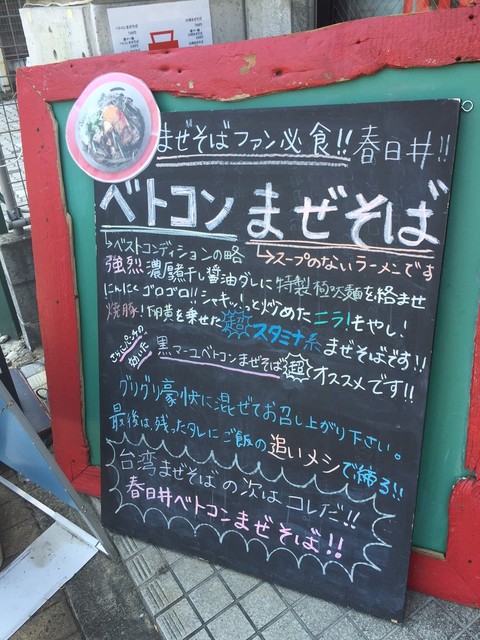 まぜそばファン必食!! 春日井!!
ベトコン まぜそば
↳ベストコンディションの略 ↳スープのないラーメンです
強烈 濃厚煮干し醤油ダレに特製極太麺を絡ませ
にんにくゴロゴロ!!シャキッ!っと炒めたニラ!もやし!
焼豚!卵黄を乗せた超スタミナ系まぜそばです!!
さらにパンチの効いた 黒マーユベトコンまぜそば超オススメです!!
グリグリ豪快に混ぜてお召し上がり下さい。
最後は残ったタレにご飯の追いメシで締る!!
台湾まぜそばの次はコレだ!!
春日井ベトコンまぜそば!!